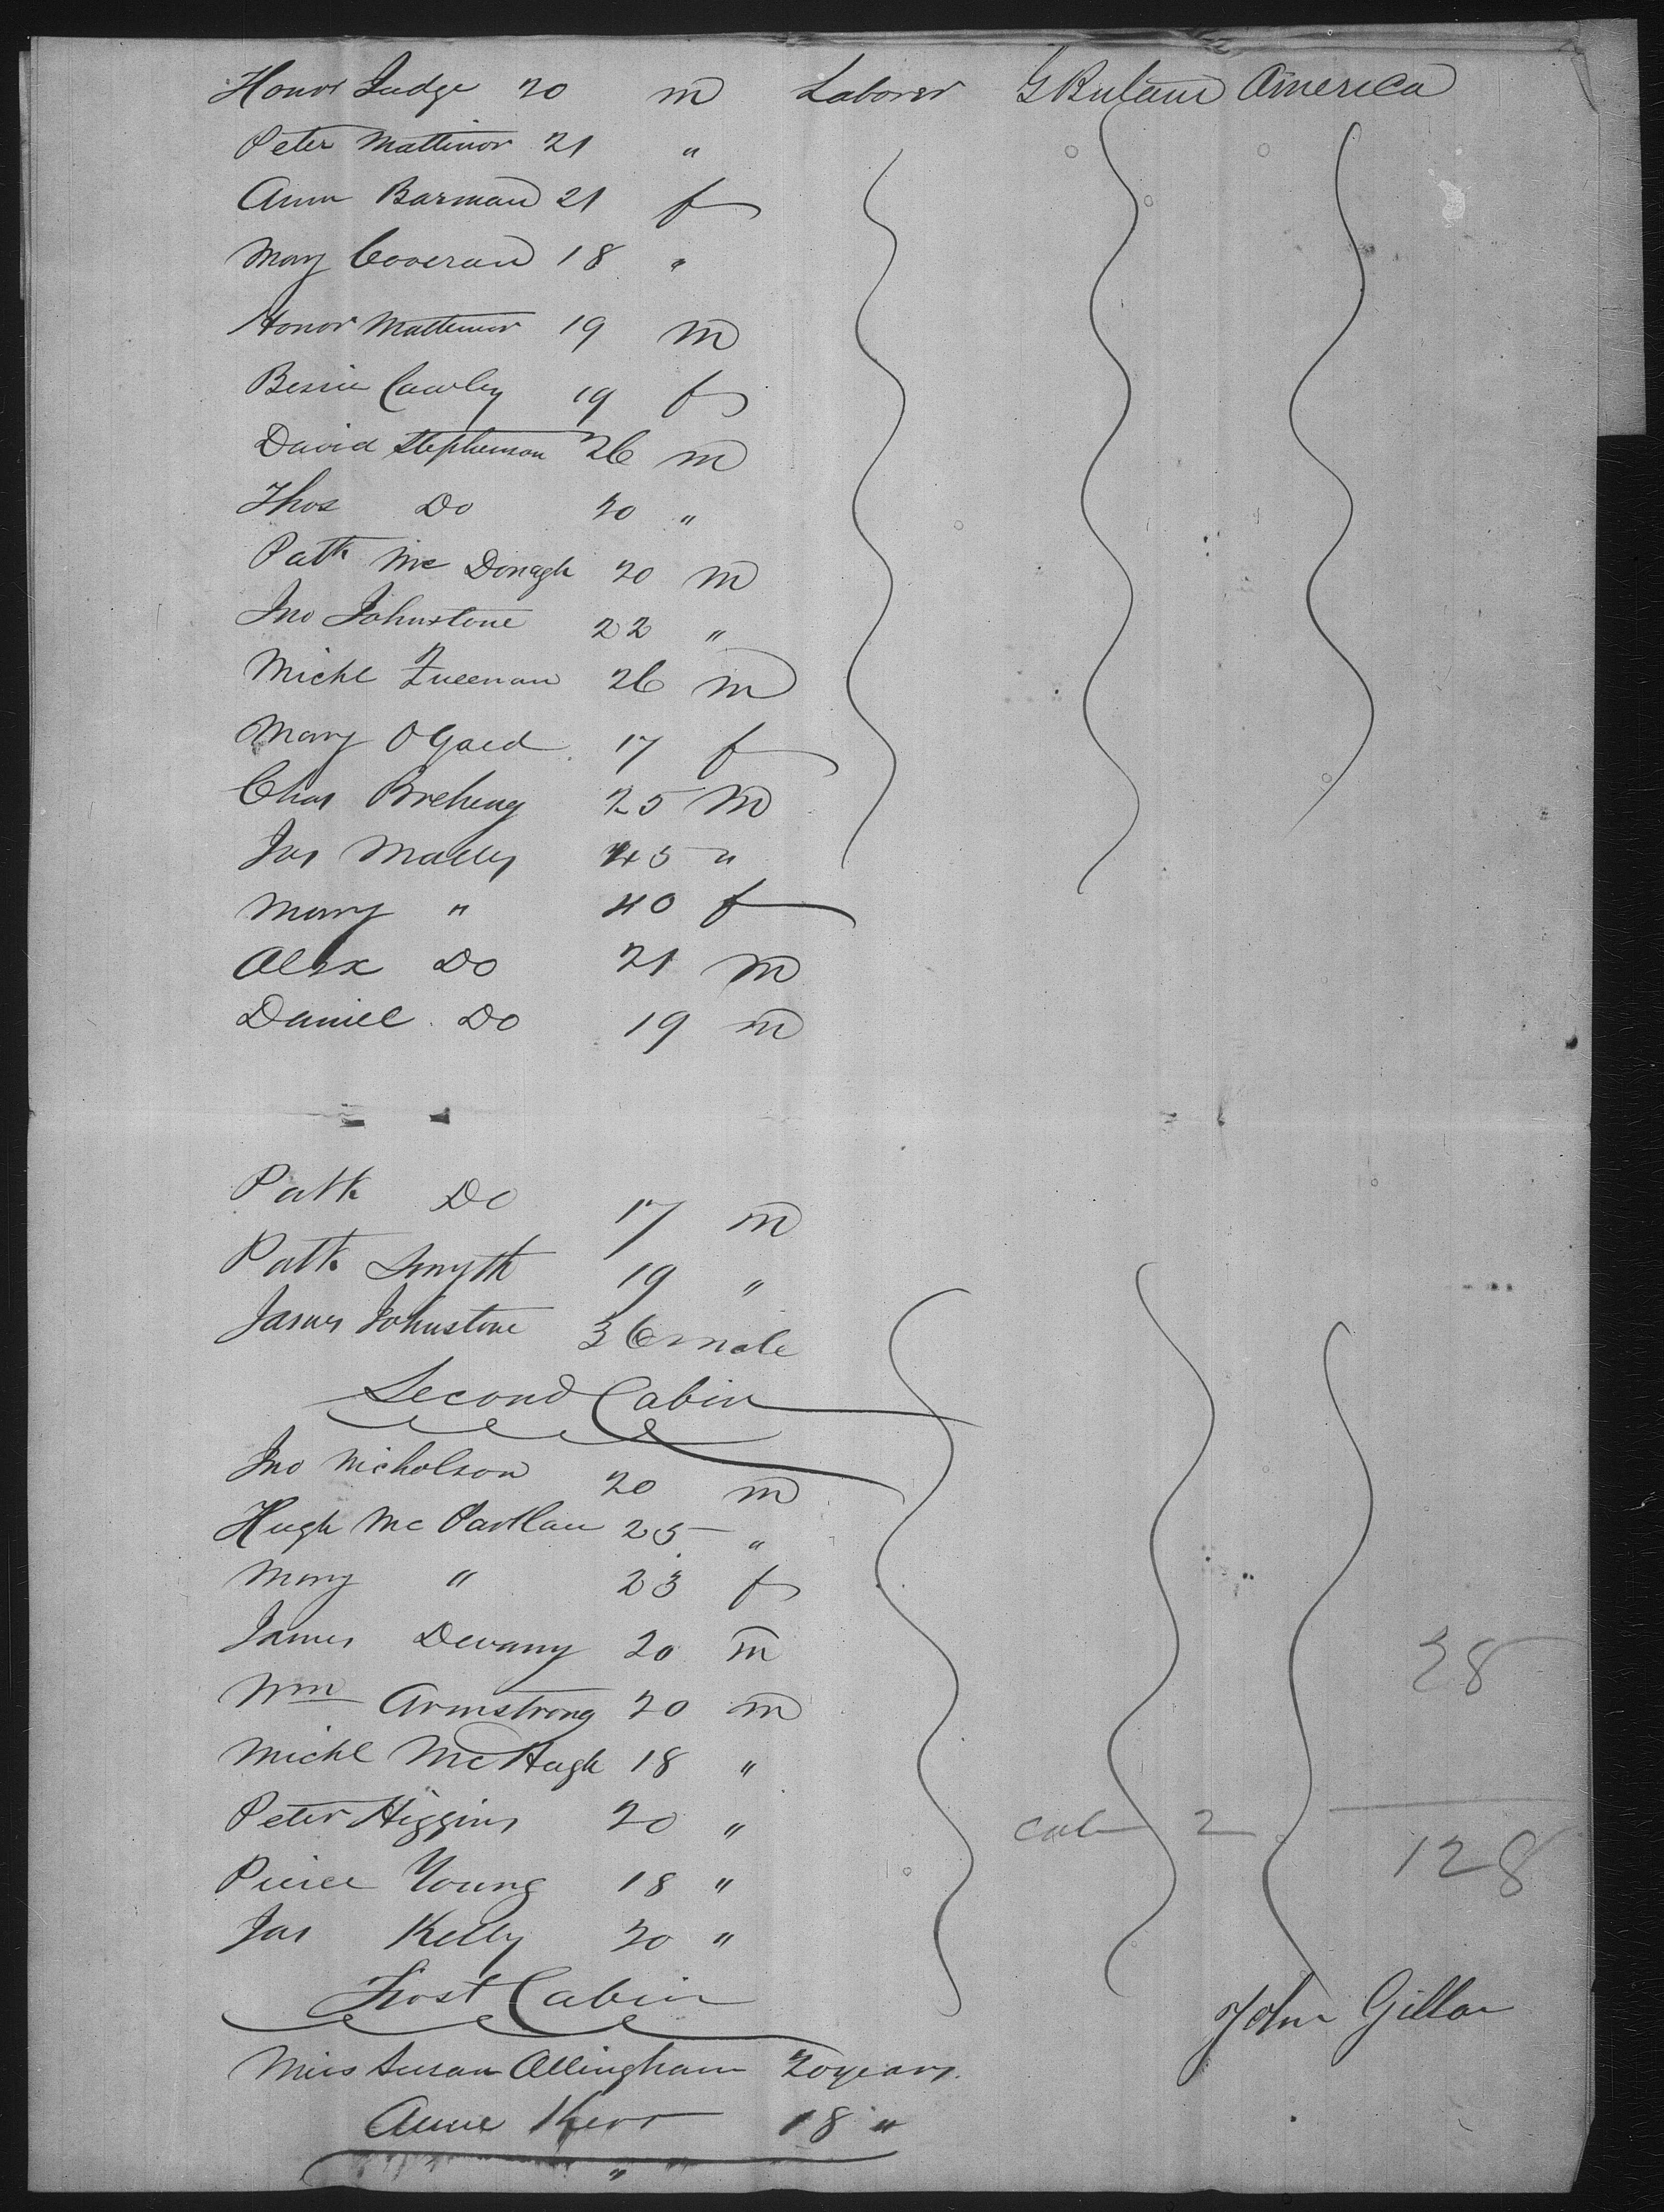 Honor Judge 20 m Laborer G Britain America
Peter Mattimor 21 "
Ann Barman 21 f
Mary Coveran 18 "
Honor Mattimor 19 m
Bessie Cawley 19 f
David Stephenson 26 m
Thos Do 20 "
Patk Mc Donagh 20 m
Jno Johnstone 22 "
Michl 26 m
Mary O Gara 17 f
Chas Breheny 25 m
Jas Mally 45 "
Mary " 40 f
Alex Do 21 m
Daniel Do 19 m
Patk Do 17 m
Patk Smyth 19 "
James Johnstone 36 male
Second Cabin
Jno Nicholson 20 m
Hugh Mc Partlan 25 "
Mary " 23 f
James Devany 20 m
28
Wm Armstrong 20 m
Michl McHugh 18 "
Peter Higgins 20 "
cab 2
128
Pierce Young 18 "
Jas Kelly 20 "
First Cabin
John Gillan
Miss Susan Allingham 20 years
Anne Kerr 18 "
"